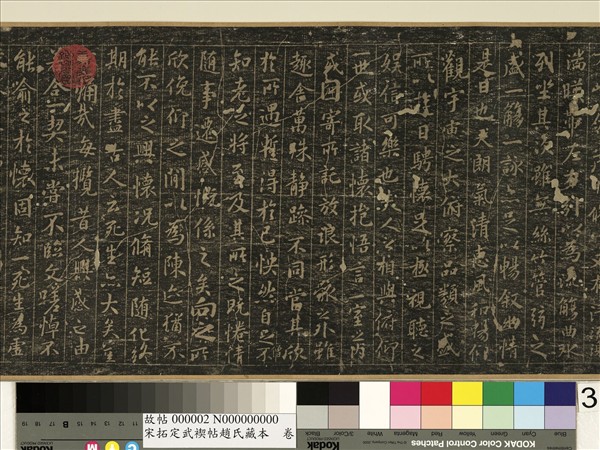 湍暎帶左右引以為流觴曲水
列坐其次雖無絲竹管弦之
盛一觴一詠亦足以暢叙幽情
是日也天朗氣清惠風和暢仰
觀宇宙之大俯察品類之盛
所以遊目騁懷足以極視聽之
娛信可樂也夫人之相與俯仰
一世或取諸懷抱悟言一室之內
或因寄所託放浪形骸之外雖
趣舍萬殊靜躁不同當其欣
於所遇蹔得於己怏然自足不
知老之將至及其所之既惓情
隨事遷感慨係之矣向之所
欣俛仰之閒以為陳迹猶不
能不以之興懷況脩短隨化終
期於盡古人云死生亦大矣豈
不痛哉每攬昔人興感之由
若合一契未嘗不臨文嗟悼不
能喻之於懷固知一死生為虛
3
故帖 000002 N000000000
宋拓定武禊帖趙氏藏本 卷
19 18 17 16 15 B 14 13 12 11
M C
Black 3/Color White Magenta Red Yellow Green Cyan Blue
KODAK Color Control Patches
Kodak